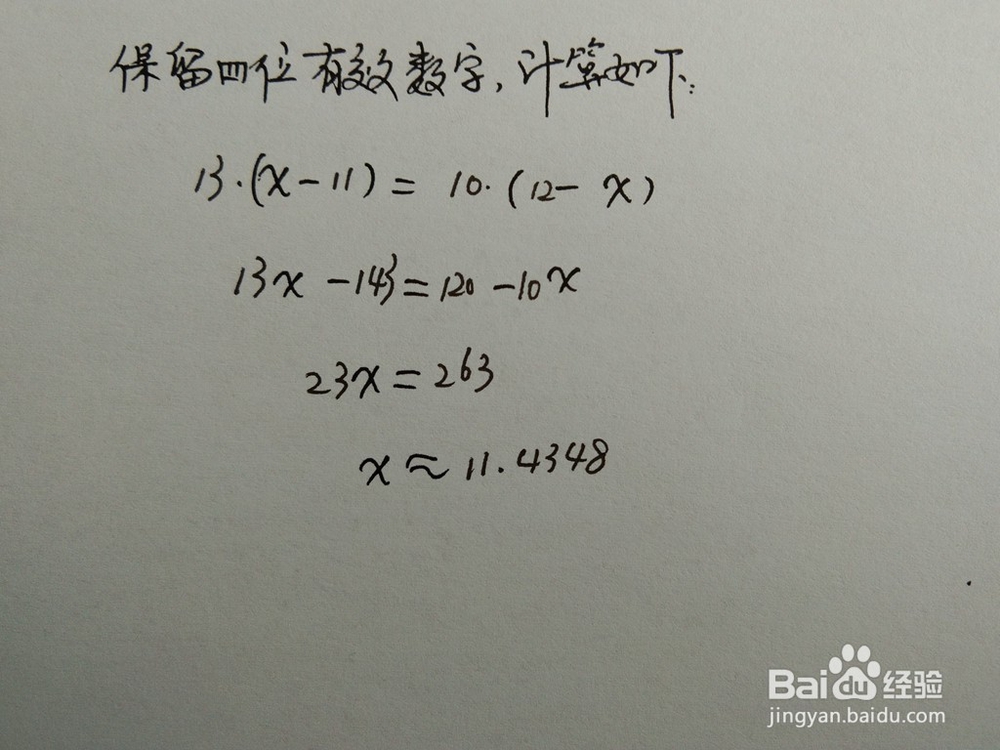 保留四位有效数字，计算如下：
13·(x-11)= 10·(12-x)
13x-143=120-10x
23x=263
x≈11.4348
Baidu经验
jingyan.baidu.com